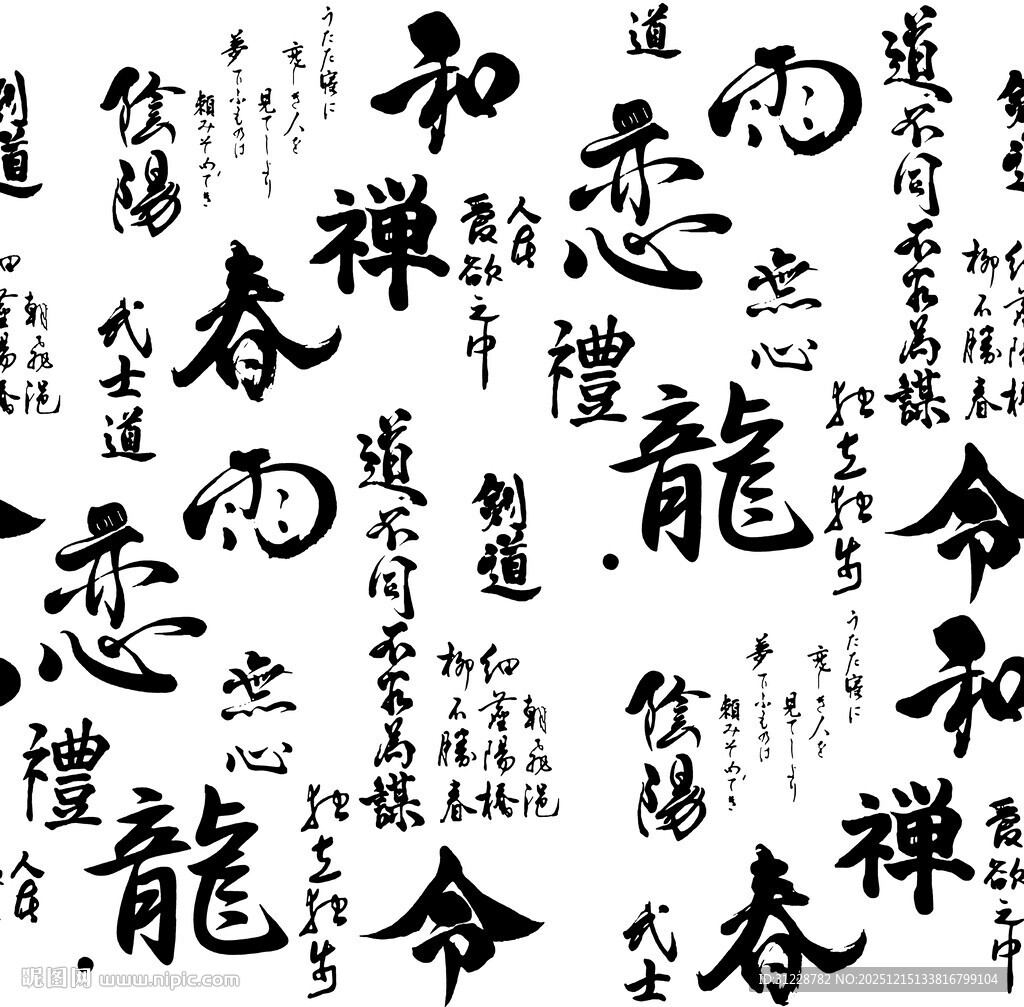 道
剣道
陰陽
うたた寝に
恋しき人を
見てしより
夢てふものは
頼みそめてき
和
恋
雨
道不同不相為謀
剣道
禅
人在
愛欲之中
春
無心
朝飛浥
柳不勝春
武士道
禮
龍
独立独歩
令
雨
恋
道不同不相為謀
剣道
無心
朝飛浥
柳不勝春
禮
龍
独立独歩
令
人在
陰陽
うたた寝に
恋しき人を
見てしより
夢てふものは
頼みそめてき
和
禅
愛欲之中
春
武士
昵图网 www.nipic.com
ID:31228782 NO:20251215133816799104